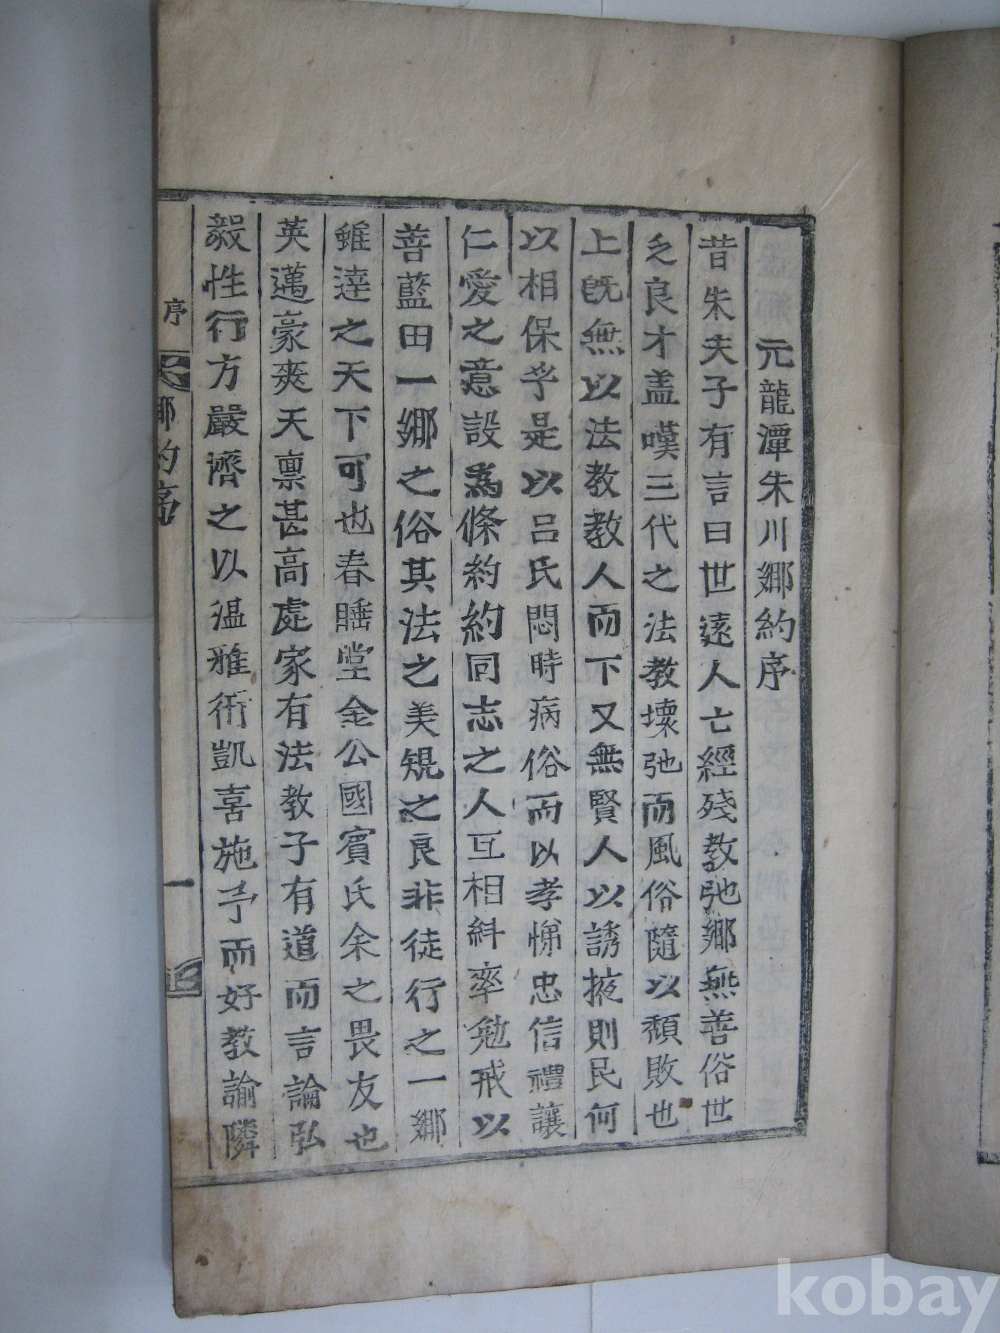 元龍潭朱川鄉約序
昔朱夫子有言曰世遠人亡經殘教弛鄉無善俗世
乏良才盖嘆三代之法教壞弛而風俗隨以頹敗也
上旣無以法教教人而下又無賢人以誘掖則民何
以相保乎是以呂氏悶時病俗而以孝悌忠信禮讓
仁愛之意設爲條約約同志之人互相糾率勉戒以
善藍田一鄉之俗其法之美規之良非徒行之一鄉
雖達之天下可也春睡堂金公國賓氏余之畏友也
英邁豪爽天禀甚高處家有法教子有道而言論弘
毅性行方嚴濟之以溫雅術凱喜施予而好教諭隣
序
鄉約序
一
kobay